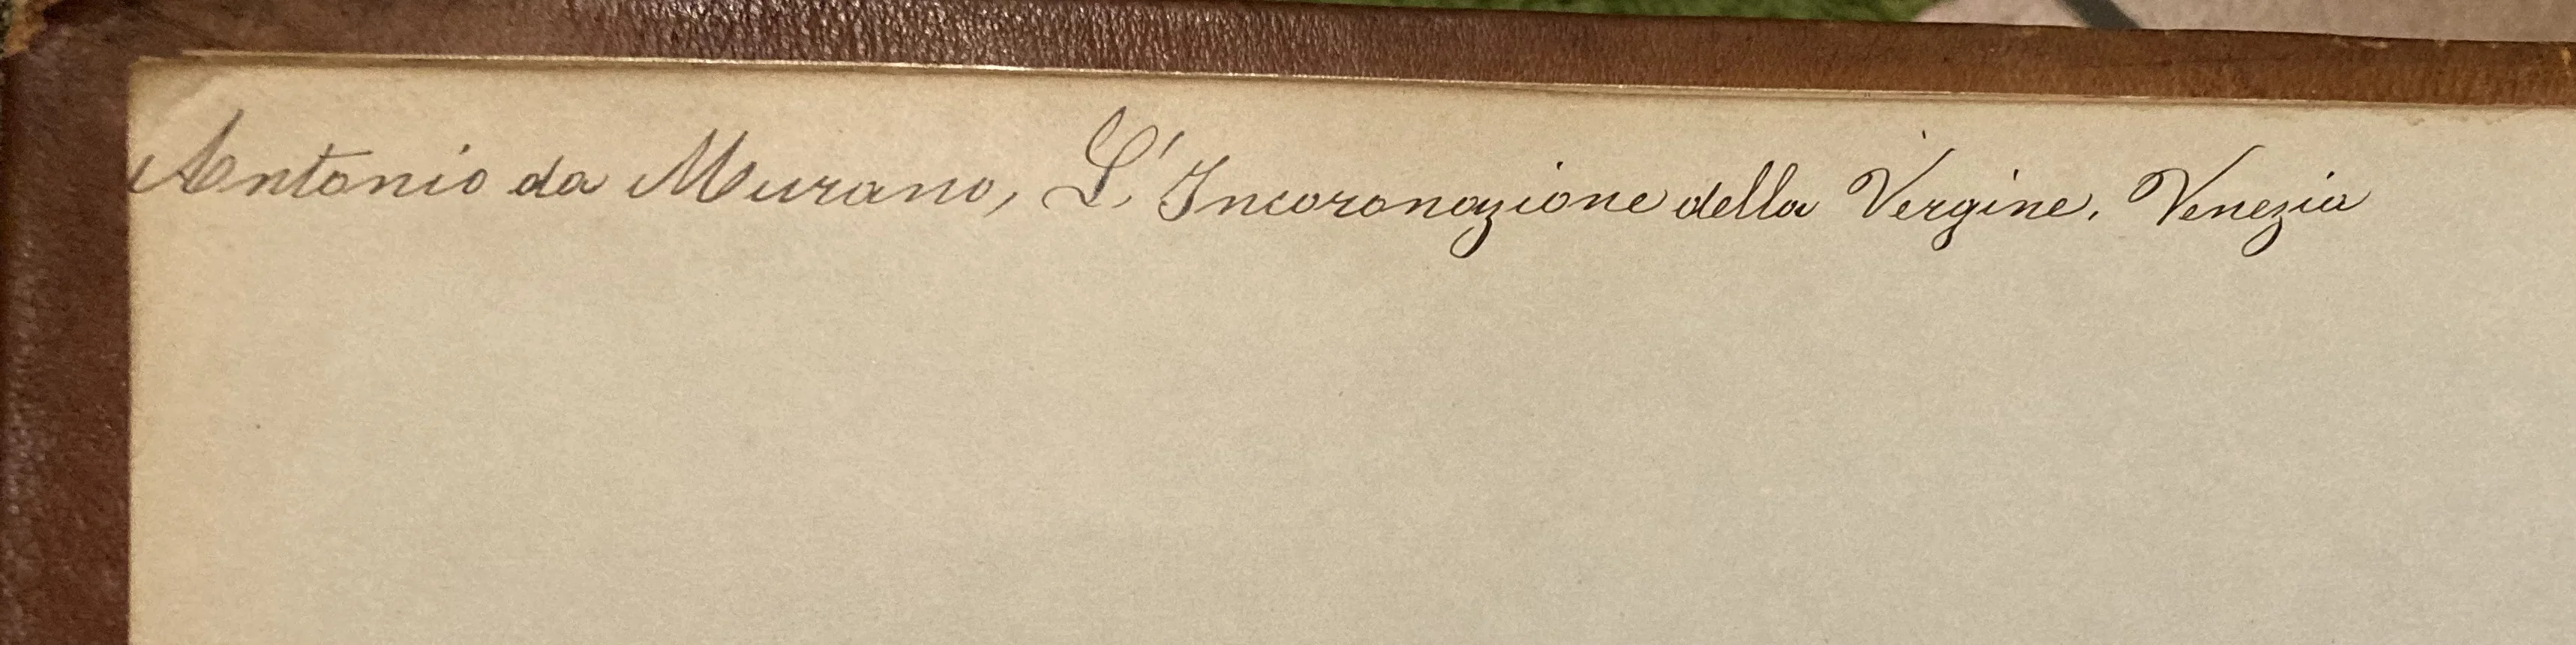 Antonio da Murano, L'Incoronazione della Vergine. Venezia